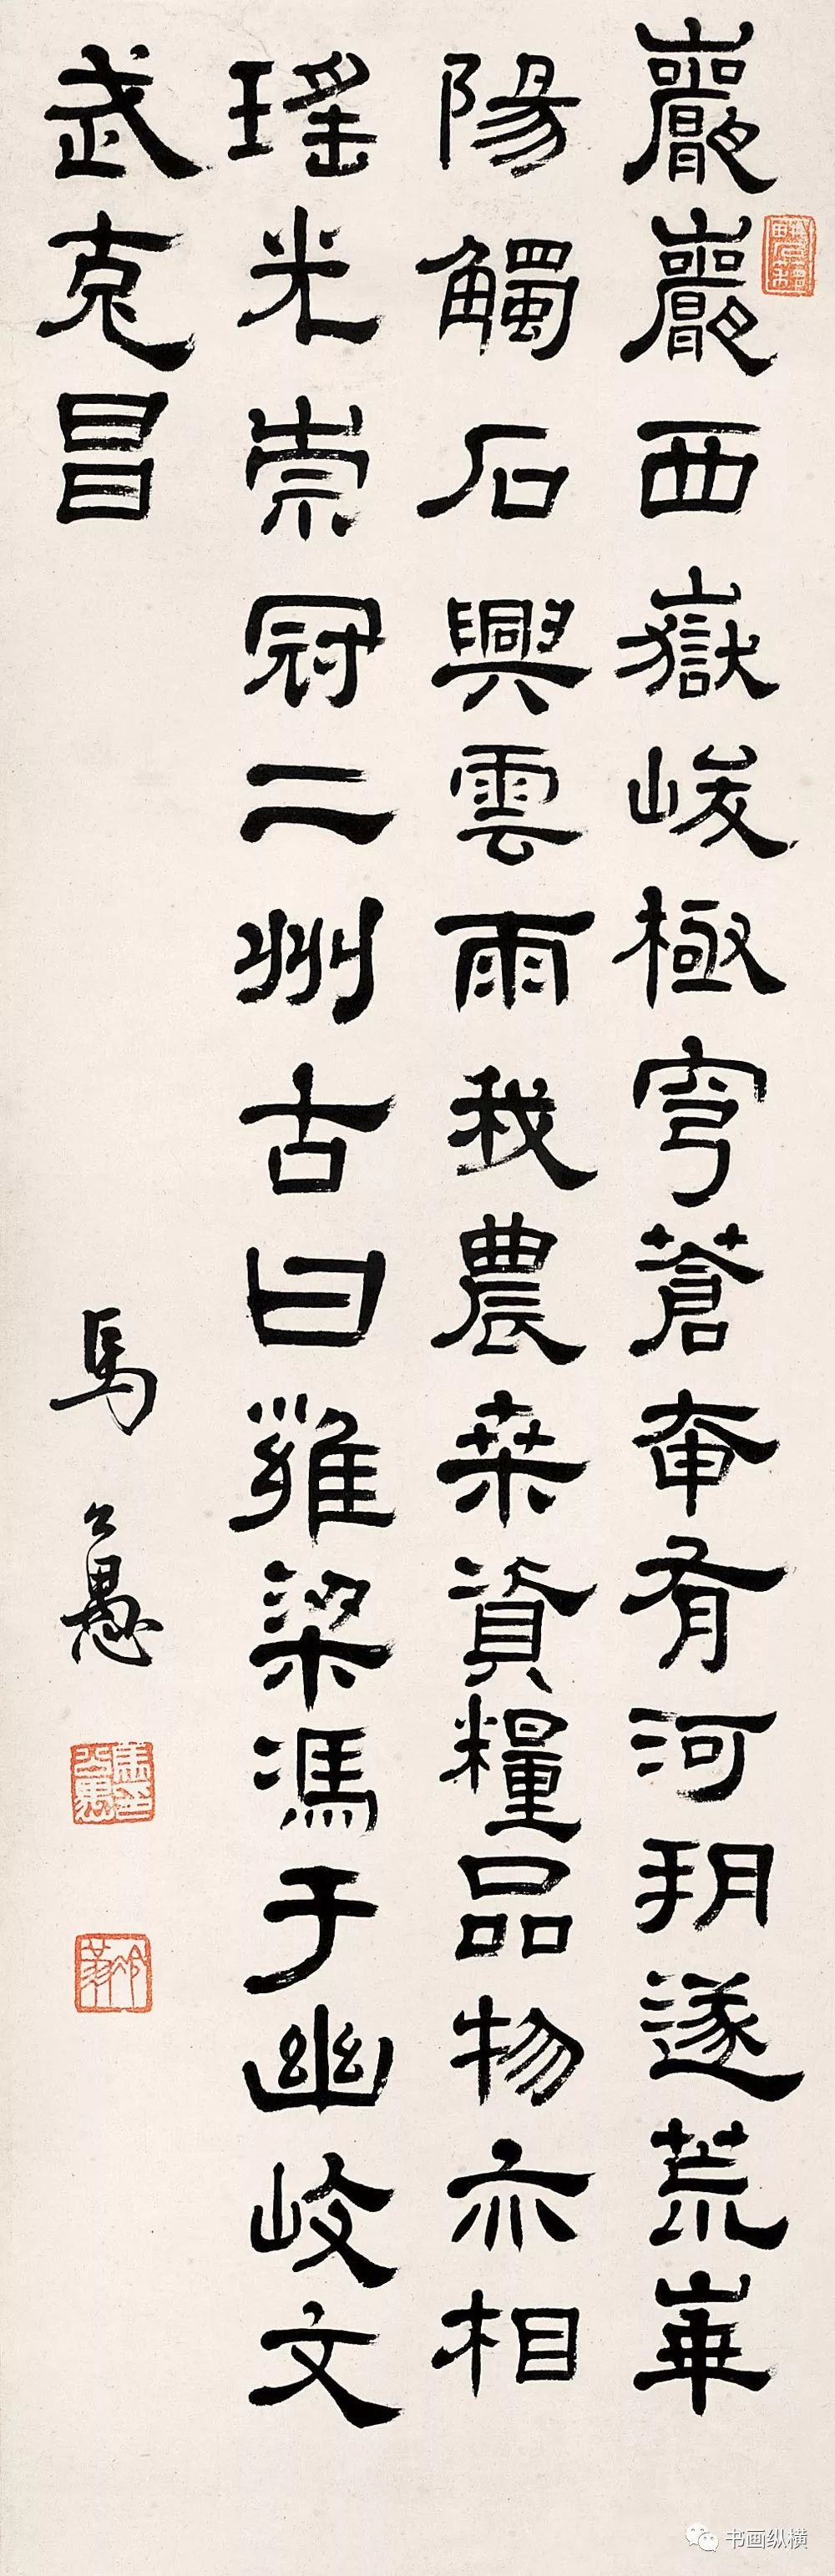 巖巖西嶽峻極穹蒼奄有河朔遂荒崋
陽觸石興雲雨我農桒資糧品物亦相
瑤光崇冠二州古曰雍梁馮于豳岐文
武克昌
馬公愚
书画纵横